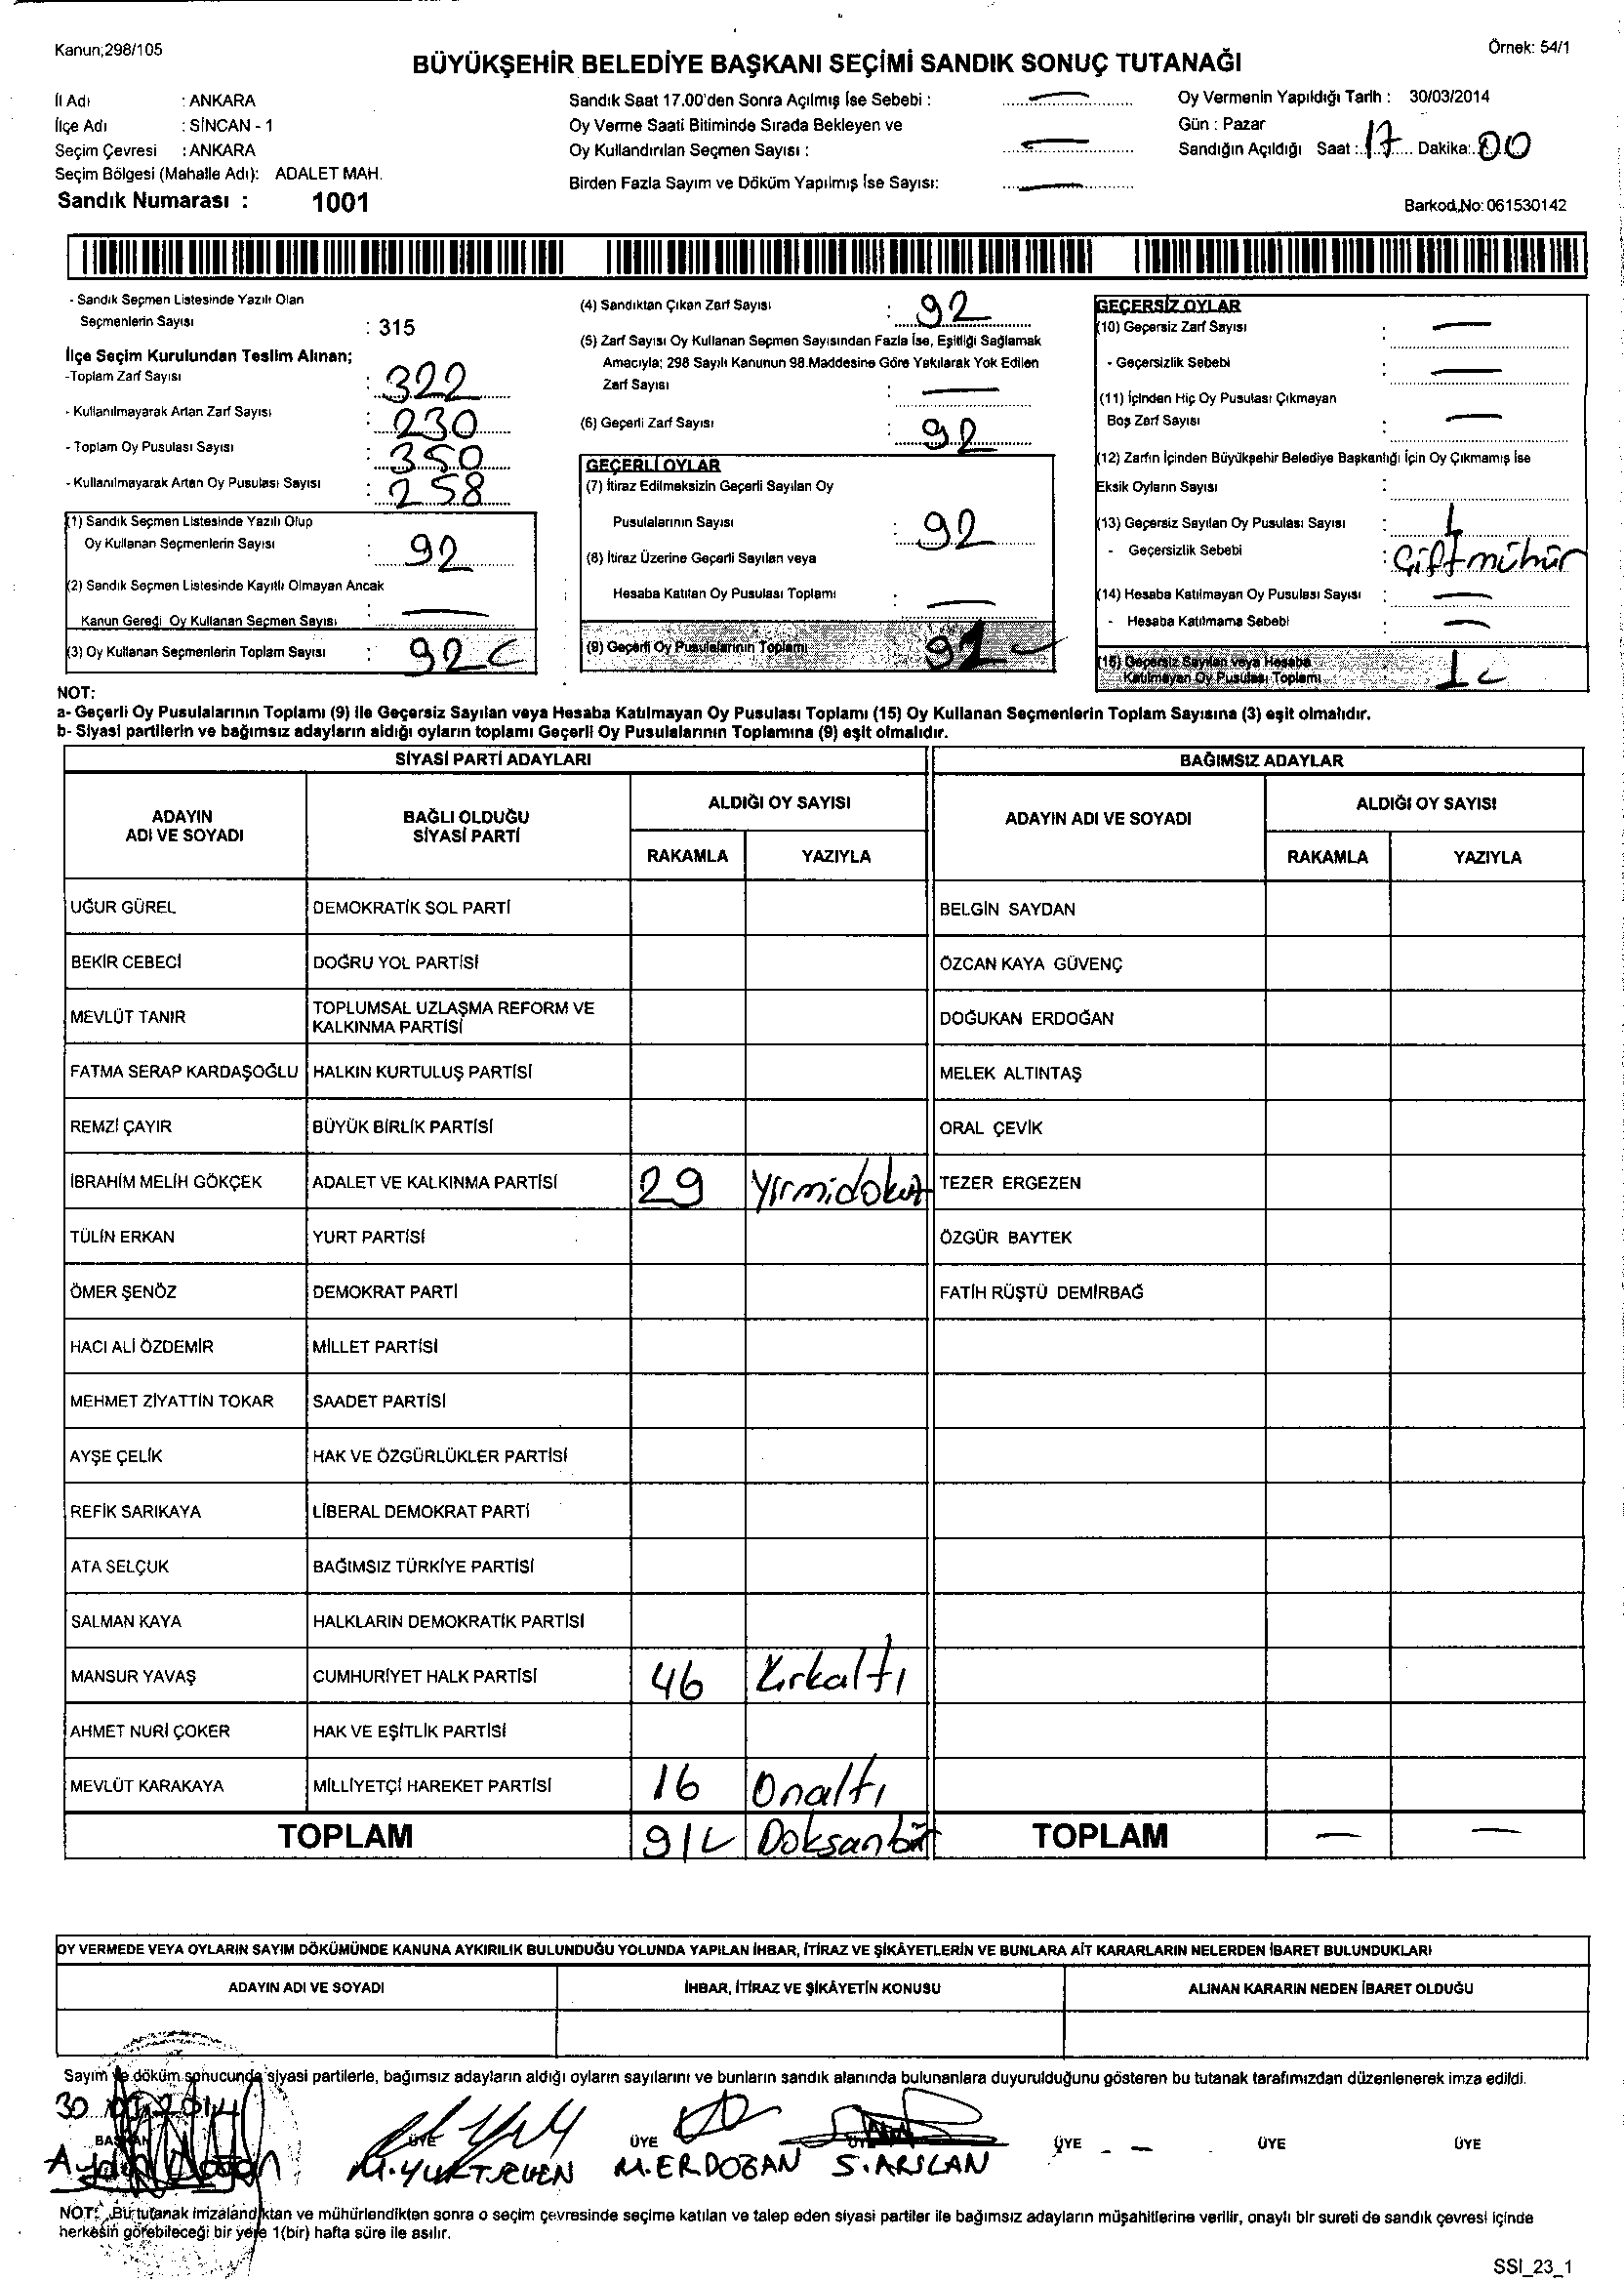 Kanun;298/105
Örnek: 54/1
BÜYÜKŞEHİR BELEDİYE BAŞKANI SEÇİMİ SANDIK SONUÇ TUTANAĞI
İl Adı : ANKARA
İlçe Adı : SİNCAN - 1
Seçim Çevresi : ANKARA
Seçim Bölgesi (Mahalle Adı): ADALET MAH.
Sandık Numarası : 1001
Sandık Saat 17.00'den Sonra Açılmış İse Sebebi : —
Oy Verme Saati Bitiminde Sırada Bekleyen ve
Oy Kullandırılan Seçmen Sayısı : —
Birden Fazla Sayım ve Döküm Yapılmış İse Sayısı: —
Oy Vermenin Yapıldığı Tarih : 30/03/2014
Gün : Pazar
Sandığın Açıldığı Saat : 17 Dakika: 00
Barkod,No: 061530142
- Sandık Seçmen Listesinde Yazılı Olan
Seçmenlerin Sayısı : 315
İlçe Seçim Kurulundan Teslim Alınan;
-Toplam Zarf Sayısı : 322
- Kullanılmayarak Artan Zarf Sayısı : 230
- Toplam Oy Pusulası Sayısı : 350
- Kullanılmayarak Artan Oy Pusulası Sayısı : 258
(1) Sandık Seçmen Listesinde Yazılı Olup
Oy Kullanan Seçmenlerin Sayısı : 92
(2) Sandık Seçmen Listesinde Kayıtlı Olmayan Ancak
Kanun Gereği Oy Kullanan Seçmen Sayısı : —
(3) Oy Kullanan Seçmenlerin Toplam Sayısı : 92
(4) Sandıktan Çıkan Zarf Sayısı : 92
(5) Zarf Sayısı Oy Kullanan Seçmen Sayısından Fazla İse, Eşitliği Sağlamak
Amacıyla; 298 Sayılı Kanunun 98.Maddesine Göre Yakılarak Yok Edilen
Zarf Sayısı : —
(6) Geçerli Zarf Sayısı : 92
GEÇERLİ OYLAR
(7) İtiraz Edilmeksizin Geçerli Sayılan Oy
Pusulalarının Sayısı : 92
(8) İtiraz Üzerine Geçerli Sayılan veya
Hesaba Katılan Oy Pusulası Toplamı : —
(9) Geçerli Oy Pusulalarının Toplamı 91
GEÇERSİZ OYLAR
(10) Geçersiz Zarf Sayısı : —
- Geçersizlik Sebebi : —
(11) İçinden Hiç Oy Pusulası Çıkmayan
Boş Zarf Sayısı : —
(12) Zarfın İçinden Büyükşehir Belediye Başkanlığı İçin Oy Çıkmamış İse
Eksik Oyların Sayısı :
(13) Geçersiz Sayılan Oy Pusulası Sayısı : 1
- Geçersizlik Sebebi : Çift mühür
(14) Hesaba Katılmayan Oy Pusulası Sayısı : —
- Hesaba Katılmama Sebebi : —
(15) Geçersiz Sayılan veya Hesaba
Katılmayan Oy Pusulası Toplamı : 1
NOT:
a- Geçerli Oy Pusulalarının Toplamı (9) ile Geçersiz Sayılan veya Hesaba Katılmayan Oy Pusulası Toplamı (15) Oy Kullanan Seçmenlerin Toplam Sayısına (3) eşit olmalıdır.
b- Siyasi partilerin ve bağımsız adayların aldığı oyların toplamı Geçerli Oy Pusulalarının Toplamına (9) eşit olmalıdır.
SİYASİ PARTİ ADAYLARI BAĞIMSIZ ADAYLAR
ADAYIN ADI VE SOYADI BAĞLI OLDUĞU SİYASİ PARTİ ALDIĞI OY SAYISI ADAYIN ADI VE SOYADI ALDIĞI OY SAYISI
RAKAMLA YAZIYLA RAKAMLA YAZIYLA
UĞUR GÜREL DEMOKRATİK SOL PARTİ BELGİN SAYDAN
BEKİR CEBECİ DOĞRU YOL PARTİSİ ÖZCAN KAYA GÜVENÇ
MEVLÜT TANIR TOPLUMSAL UZLAŞMA REFORM VE KALKINMA PARTİSİ DOĞUKAN ERDOĞAN
FATMA SERAP KARDAŞOĞLU HALKIN KURTULUŞ PARTİSİ MELEK ALTINTAŞ
REMZİ ÇAYIR BÜYÜK BİRLİK PARTİSİ ORAL ÇEVİK
İBRAHİM MELİH GÖKÇEK ADALET VE KALKINMA PARTİSİ 29 Yirmidokuz TEZER ERGEZEN
TÜLİN ERKAN YURT PARTİSİ ÖZGÜR BAYTEK
ÖMER ŞENÖZ DEMOKRAT PARTİ FATİH RÜŞTÜ DEMİRBAĞ
HACI ALİ ÖZDEMİR MİLLET PARTİSİ
MEHMET ZİYATTİN TOKAR SAADET PARTİSİ
AYŞE ÇELİK HAK VE ÖZGÜRLÜKLER PARTİSİ
REFİK SARIKAYA LİBERAL DEMOKRAT PARTİ
ATA SELÇUK BAĞIMSIZ TÜRKİYE PARTİSİ
SALMAN KAYA HALKLARIN DEMOKRATİK PARTİSİ
MANSUR YAVAŞ CUMHURİYET HALK PARTİSİ 46 Kırkaltı
AHMET NURİ ÇOKER HAK VE EŞİTLİK PARTİSİ
MEVLÜT KARAKAYA MİLLİYETÇİ HAREKET PARTİSİ 16 Onaltı
TOPLAM 91 Doksanbir TOPLAM — —
OY VERMEDE VEYA OYLARIN SAYIM DÖKÜMÜNDE KANUNA AYKIRILIK BULUNDUĞU YOLUNDA YAPILAN İHBAR, İTİRAZ VE ŞİKÂYETLERİN VE BUNLARA AİT KARARLARIN NELERDEN İBARET BULUNDUKLARI
ADAYIN ADI VE SOYADI İHBAR, İTİRAZ VE ŞİKÂYETİN KONUSU ALINAN KARARIN NEDEN İBARET OLDUĞU
Sayım ve döküm sonucunda siyasi partilerle, bağımsız adayların aldığı oyların sayılarını ve bunların sandık alanında bulunanlara duyurulduğunu gösteren bu tutanak tarafımızdan düzenlenerek imza edildi.
30 03 2014
BAŞKAN ÜYE ÜYE ÜYE ÜYE — — ÜYE ÜYE
M.YURTSEVEN M.ERDOĞAN S.ARSLAN
NOT: Bu tutanak imzalandıktan ve mühürlendikten sonra o seçim çevresinde seçime katılan ve talep eden siyasi partiler ile bağımsız adayların müşahitlerine verilir, onaylı bir sureti de sandık çevresi içinde
herkesin görebileceği bir yere 1(bir) hafta süre ile asılır.
SSI_23_1